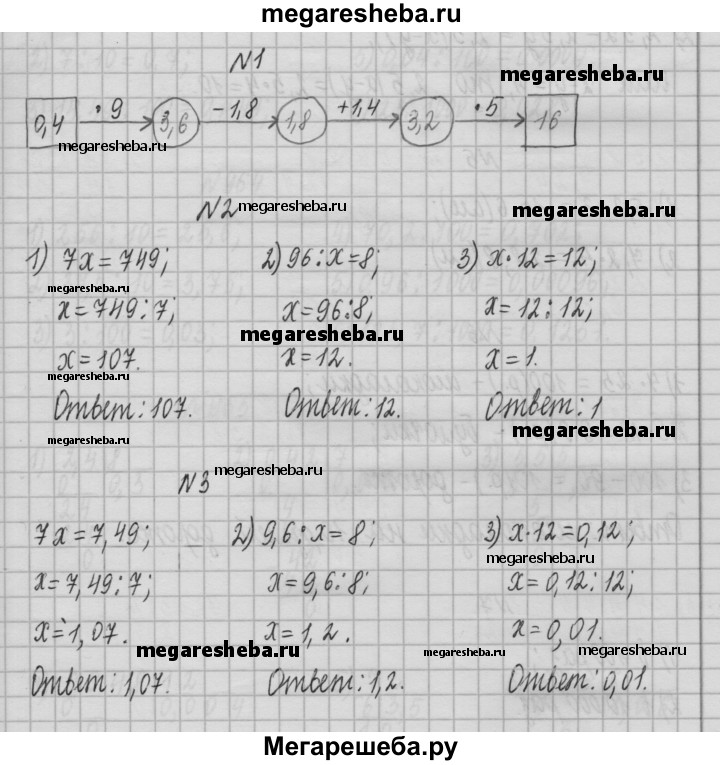 megaresheba.ru
N1
megaresheba.ru
0,4 ·9 3,6 -1,8 1,8 +1,4 3,2 ·5 16
megaresheba.ru
N2 megaresheba.ru megaresheba.ru
1) 7x=749; 2) 96:x=8; 3) x·12=12;
megaresheba.ru
x=749:7; x=96:8; x=12:12;
megaresheba.ru
x=107. x=12. x=1.
megaresheba.ru
Ответ:107. Ответ:12. Ответ:1
megaresheba.ru megaresheba.ru
N3 megaresheba.ru
7x=7,49; 2) 9,6:x=8; 3) x·12=0,12;
megaresheba.ru
x=7,49:7; x=9,6:8; x=0,12:12;
x=1,07. x=1,2. x=0,01.
megaresheba.ru megaresheba.ru megaresheba.ru
Ответ:1,07. Ответ:1,2. Ответ:0,01.
Мегарешеба.ру